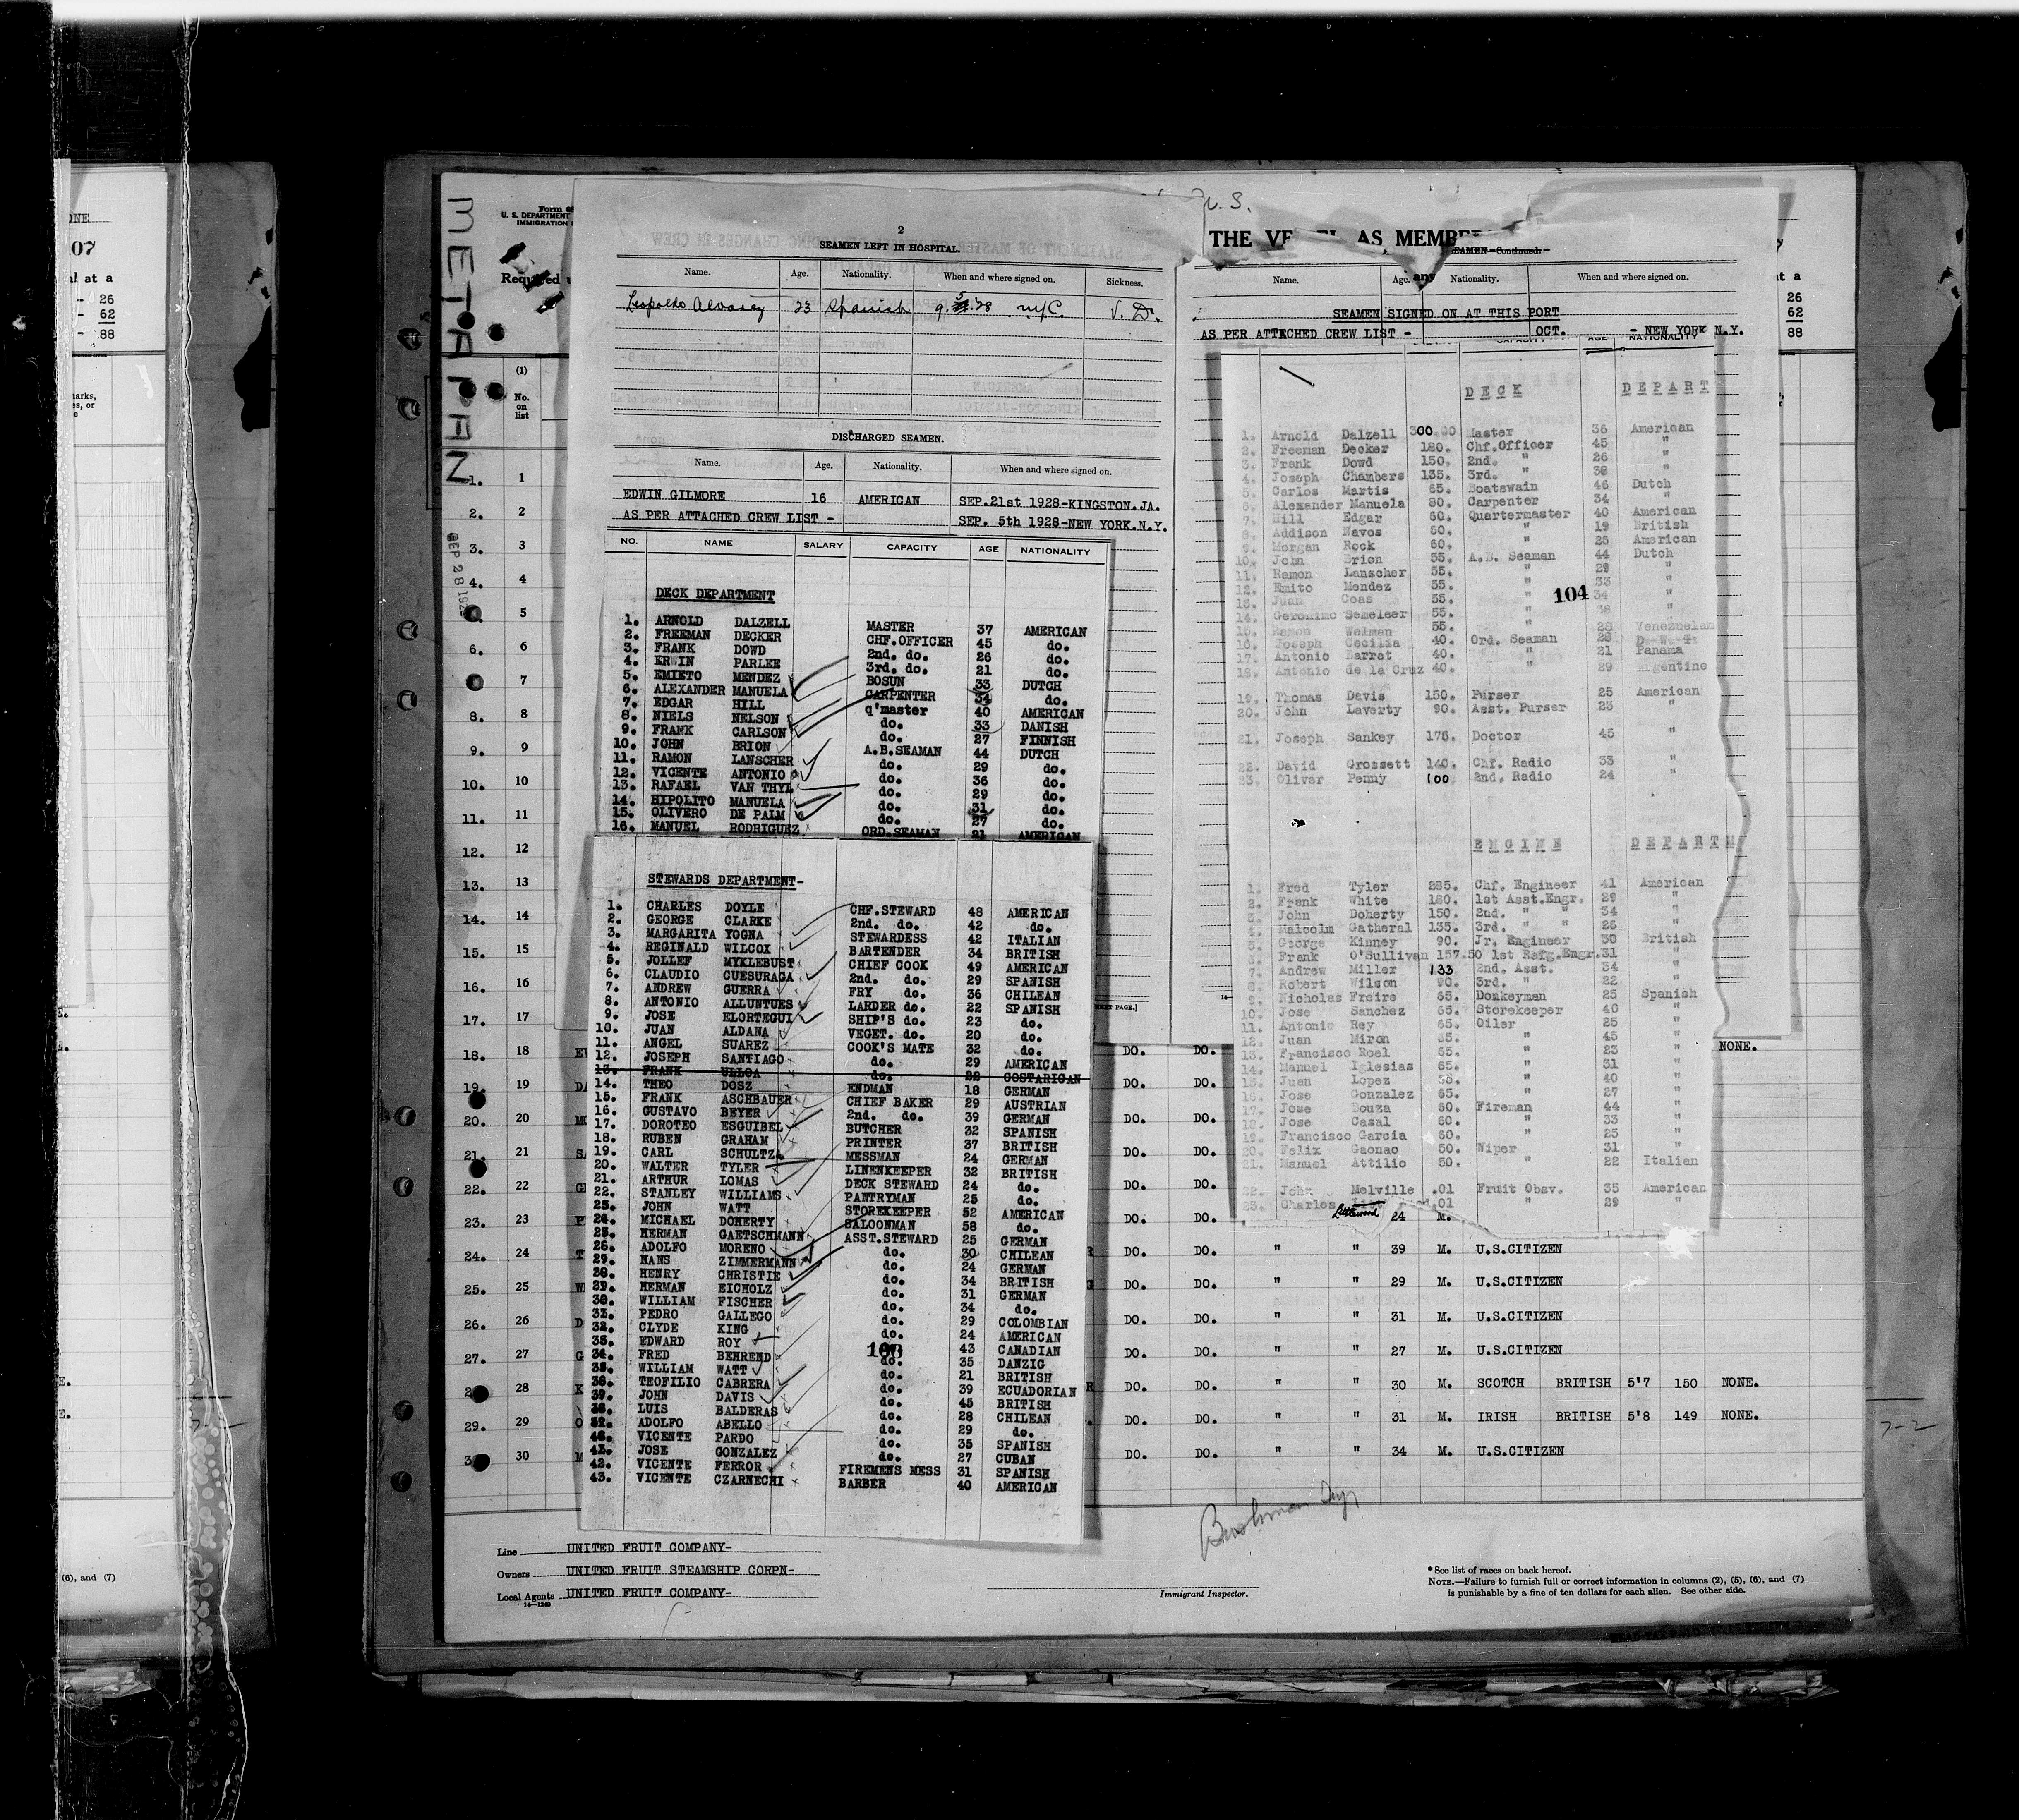 ONE
07
al at a
- 26
- 62
- 88
arks,
es, or
(6), and (7)
METAPAN
SEP 28 192
Form 68
U. S. DEPARTMENT
IMMIGRATION
Required
2
SEAMEN LEFT IN HOSPITAL.
Name. Age. Nationality. When and where signed on. Sickness.
Leopoldo Alvarez 23 Spanish 9. 5. 28 NYC. V. D.
DISCHARGED SEAMEN.
Name. Age. Nationality. When and where signed on.
EDWIN GILMORE 16 AMERICAN SEP.21st 1928-KINGSTON.JA.
AS PER ATTACHED CREW LIST - SEP. 5th 1928-NEW YORK.N.Y.
NO. NAME SALARY CAPACITY AGE NATIONALITY
DECK DEPARTMENT
1. ARNOLD DALZELL MASTER 37 AMERICAN
2. FREEMAN DECKER CHF.OFFICER 45 do.
3. FRANK DOWD 2nd. do. 26 do.
4. ERWIN PARLEE 3rd. do. 21 do.
5. EMIETO MENDEZ BOSUN 33 DUTCH
6. ALEXANDER MANUELA CARPENTER 34 do.
7. EDGAR HILL q'master 40 AMERICAN
8. NIELS NELSON do. 33 DANISH
9. FRANK CARLSON do. 27 FINNISH
10. JOHN BRION A.B.SEAMAN 44 DUTCH
11. RAMON LANSCHER do. 29 do.
12. VICENTE ANTONIO do. 36 do.
13. RAFAEL VAN THYL do. 29 do.
14. HIPOLITO MANUELA do. 31 do.
15. OLIVERO DE PALM do. 27 do.
16. MANUEL RODRIGUEZ ORD.SEAMAN 21 AMERICAN
STEWARDS DEPARTMENT-
1. CHARLES DOYLE CHF.STEWARD 48 AMERICAN
2. GEORGE CLARKE 2nd. do. 42 do.
3. MARGARITA YOGNA STEWARDESS 42 ITALIAN
4. REGINALD WILCOX BARTENDER 34 BRITISH
5. JOLLEF MYKLEBUST CHIEF COOK 49 AMERICAN
6. CLAUDIO CUESURAGA 2nd. do. 29 SPANISH
7. ANDREW GUERRA FRY do. 36 CHILEAN
8. ANTONIO ALLUNTUES LARDER do. 22 SPANISH
9. JOSE ELORTEGUI SHIP'S do. 23 do.
10. JUAN ALDANA VEGET. do. 20 do.
11. ANGEL SUAREZ COOK'S MATE 32 do.
12. JOSEPH SANTIAGO do. 29 AMERICAN
13. FRANK ULLOA do. 22 COSTARICAN
14. THEO DOSZ ENDMAN 18 GERMAN
15. FRANK ASCHBAUER CHIEF BAKER 29 AUSTRIAN
16. GUSTAVO BEYER 2nd. do. 39 GERMAN
17. DOROTEO ESGUIBEL BUTCHER 32 SPANISH
18. RUBEN GRAHAM PRINTER 37 BRITISH
19. CARL SCHULTZ MESSMAN 24 GERMAN
20. WALTER TYLER LINENKEEPER 32 BRITISH
21. ARTHUR LOMAS DECK STEWARD 24 do.
22. STANLEY WILLIAMS PANTRYMAN 25 do.
JOHN WATT STOREKEEPER 52 AMERICAN
24. MICHAEL DOHERTY SALOONMAN 58 do.
25. HERMAN GAETSCHMANN ASST.STEWARD 25 GERMAN
26. ADOLFO MORENO do. 30 CHILEAN
HANS ZIMMERMANN do. 24 GERMAN
HENRY CHRISTIE do. 34 BRITISH
HERMAN EICHOLZ do. 31 GERMAN
WILLIAM FISCHER do. 34 do.
PEDRO GALLEGO do. 29 COLOMBIAN
CLYDE KING do. 24 AMERICAN
EDWARD ROY do. 43 CANADIAN
FRED BEHREND do. 35 DANZIG
WILLIAM WATT do. 21 BRITISH
TEOFILIO CABRERA do. 39 ECUADORIAN
JOHN DAVIS do. 45 BRITISH
LUIS BALDERAS do. 28 CHILEAN
ADOLFO ABELLO do. 29 do.
VICENTE PARDO do. 35 SPANISH
JOSE GONZALEZ do. 27 CUBAN
42. VICENTE FERROR FIREMENS MESS 31 SPANISH
43. VICENTE CZARNECHI BARBER 40 AMERICAN
U.S.
THE VE AS MEMBE
SEAMEN-Continued-
any
Name. Age. Nationality. When and where signed on.
SEAMEN SIGNED ON AT THIS PORT
AS PER ATTACHED CREW LIST - OCT. - NEW YORK N.Y.
CAPACITY AGE NATIONALITY
DECK DEPART
1. Arnold Dalzell 300.00 Master 36 American
2. Freeman Decker 180. Chf.Officer 45 "
3. Frank Dowd 150. 2nd. " 26 "
4. Joseph Chambers 135. 3rd. " 38 "
5. Carlos Martis 65. Boatswain 46 Dutch
6. Alexander Manuela 80. Carpenter 34 "
7. Hill Edgar 60. Quartermaster 40 American
8. Addison Navos 60. " 19 British
9. Morgan Rock 60. " 25 American
10. John Brion 55. A.B. Seaman 44 Dutch
11. Ramon Lanscher 55. " 29 "
12. Emito Mendez 55. " 33 "
13. Juan Coas 55. " 34 "
14. Geronimo Semeleer 55. " 38 "
15. Ramon Welman 55. " 28 Venezuelan
16. Joseph Cecilia 40. Ord. Seaman 28 D W I
17. Antonio Barrat 40. " 21 Panama
18. Antonio de la Cruz 40. " 29 Argentine
19. Thomas Davis 150. Purser 25 American
20. John Laverty 90. Asst. Purser 23 "
21. Joseph Sankey 175. Doctor 45 "
22. David Grossett 140. Chf. Radio 33 "
23. Oliver Penny 100 2nd. Radio 24 "
104
ENGINE DEPARTM
1. Fred Tyler 285. Chf. Engineer 41 American
2. Frank White 180. 1st Asst.Engr. 29 "
3. John Doherty 150. 2nd. " " 34 "
4. Malcolm Gatheral 135. 3rd. " " 26 "
5. George Kinney 90. Jr. Engineer 30 British
6. Frank O'Sullivan 157.50 1st Refg.Engr. 31 "
7. Andrew Miller 133 2nd. Asst. 34 "
8. Robert Wilson 90. 3rd. " 22 "
9. Nicholas Freire 65. Donkeyman 25 Spanish
10. Jose Sanchez 65. Storekeeper 40 "
11. Antonio Rey 65. Oiler 25 "
12. Juan Miron 65. " 45 "
13. Francisco Noel 65. " 23 "
14. Manuel Iglesias 65. " 31 "
15. Juan Lopez 65. " 40 "
16. Jose Gonzalez 65. " 27 "
17. Jose Bouza 60. Fireman 44 "
18. Jose Casal 60. " 33 "
19. Francisco Garcia 60. " 25 "
20. Felix Gaonao 50. Wiper 31 "
21. Manuel Attilio 50. " 22 Italian
22. John Melville .01 Fruit Obsv. 35 American
23. Charles Littlewood .01 " 29 "
at a
26
62
88
(1)
No.
on
list
1. 1
2. 2
3. 3
4. 4
5
6. 6
7
8. 8
9. 9
10. 10
11. 11
12. 12
13. 13
14. 14
15. 15
16. 16
17. 17
18. 18 DO. DO. NONE.
19. 19 DO. DO.
20. 20 DO. DO.
21. 21 DO. DO.
22. 22 DO. DO.
23. 23 DO. DO. 24 M.
24. 24 DO. DO. " " 39 M. U.S.CITIZEN
25. 25 DO. DO. " " 29 M. U.S.CITIZEN
26. 26 DO. DO. " " 31 M. U.S.CITIZEN
27. 27 DO. DO. " " 27 M. U.S.CITIZEN
28 DO. DO. " " 30 M. SCOTCH BRITISH 5'7 150 NONE.
29. 29 DO. DO. " " 31 M. IRISH BRITISH 5'8 149 NONE.
30 DO. DO. " " 34 M. U.S.CITIZEN
7-2
Line UNITED FRUIT COMPANY-
Owners UNITED FRUIT STEAMSHIP CORPN-
Local Agents UNITED FRUIT COMPANY-
14-1240
Immigrant Inspector.
*See list of races on back hereof.
NOTE.—Failure to furnish full or correct information in columns (2), (5), (6), and (7)
is punishable by a fine of ten dollars for each alien. See other side.